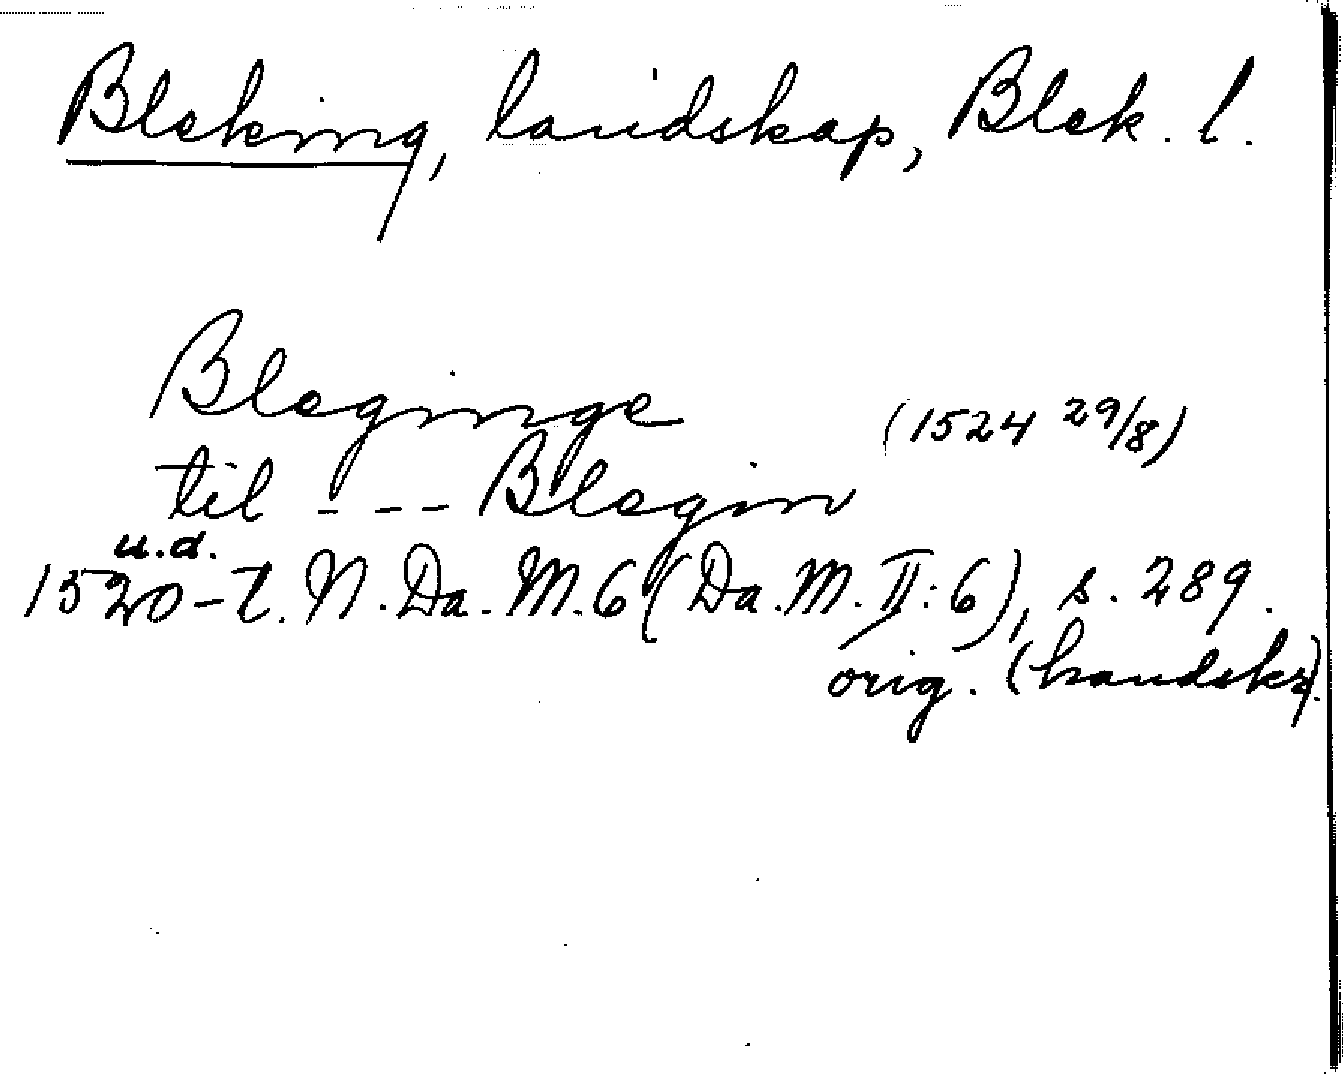 Bleking, landskap, Blek. l.
Bleginge (1524 29/8)
til - - - Blegin
u.d.
1520-t. N. Da. M. 6 (Da. M. II: 6), s. 289.
orig. (handskr).